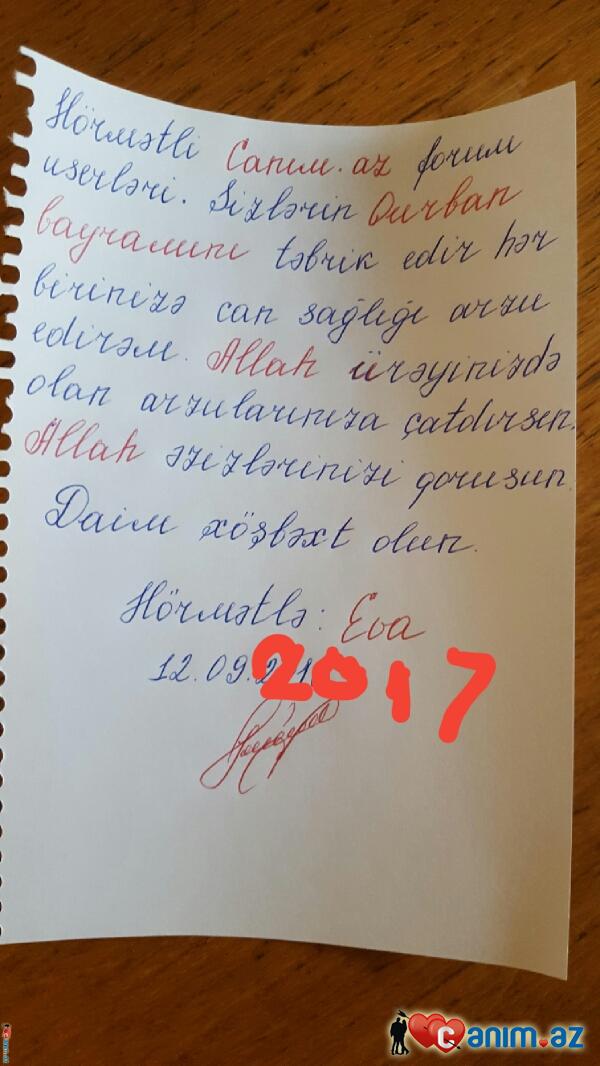 Hörmətli Canım.az forum
userləri. Sizlərin Qurban
bayramını təbrik edir hər
birinizə can sağlığı arzu
edirəm. Allah ürəyinizdə
olan arzularınıza çatdırsın.
Allah əzizlərinizi qorusun.
Daim xöşbəxt olun.
Hörmətlə: Eva
12.09.2
2017
Canim.az